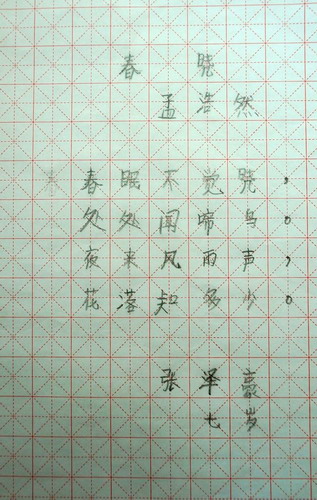 春晓
孟浩然
春眠不觉晓，
处处闻啼鸟。
夜来风雨声，
花落知多少。
张泽豪
七岁